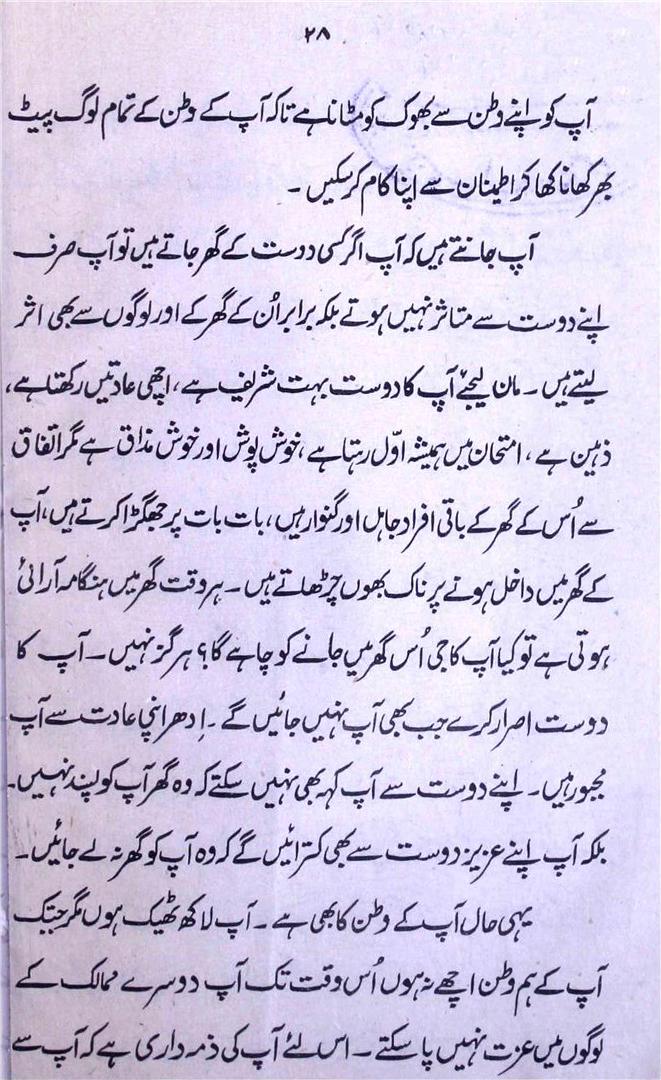 ۲۸
آپ کو اپنے وطن سے بھوک کو مٹانا ہے تاکہ آپ کے وطن کے تمام لوگ پیٹ
بھر کھانا کھا کر اطینان سے اپنا کام کر سکیں ۔
آپ جانتے ہیں کہ آپ اگر کسی دوست کے گھر جاتے ہیں تو آپ صرف
اپنے دوست سے متاثر نہیں ہوتے بلکہ برابر اُن کے گھر کے اور لوگوں سے بھی اثر
لیتے ہیں ۔ مان لیجئے آپ کا دوست بہت شریف ہے ، اچھی عادتیں رکھتا ہے ،
ذہین ہے ، امتحان میں ہمیشہ اوّل رہتا ہے ، خوش پوش اور خوش مذاق ہے مگر اتفاق
سے اُس کے گھر کے باقی افراد جاہل اور گنوار ہیں ، بات بات پر جھگڑا کرتے ہیں ، آپ
کے گھر میں داخل ہونے پر ناک بھوں چڑھاتے ہیں ۔ ہر وقت گھر میں ہنگامہ آرائی
ہوتی ہے تو کیا آپ کا جی اُس گھر میں جانے کو چاہے گا ؟ ہرگز نہیں ۔ آپ کا
دوست اصرار کرے جب بھی آپ نہیں جائیں گے ۔ اِدھر اپنی عادت سے آپ
مجبور ہیں ۔ اپنے دوست سے آپ کہہ بھی نہیں سکتے کہ وہ گھر آپ کو پسند نہیں ۔
بلکہ آپ اپنے عزیز دوست سے بھی کترائیں گے کہ وہ آپ کو گھر نہ لے جائیں ۔
یہی حال آپ کے وطن کا بھی ہے ۔ آپ لاکھ ٹھیک ہوں مگر جبتک
آپ کے ہم وطن اچھے نہ ہوں اُس وقت تک آپ دوسرے ممالک کے
لوگوں میں عزت نہیں پا سکتے ۔ اس لئے آپ کی ذمہ داری ہے کہ آپ سے